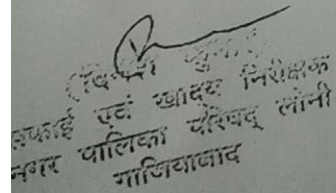 कुमार
सफाई एवं खाद्य निरीक्षक
नगर पालिका परिषद् लोनी
गाजियाबाद